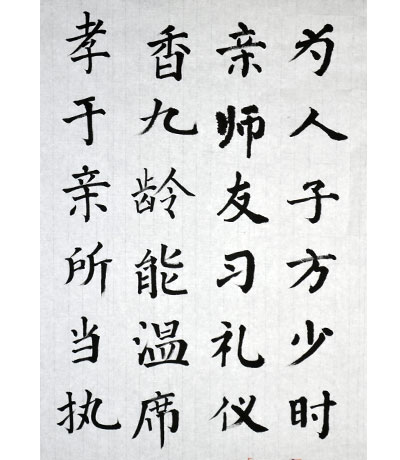 为人子方少时
亲师友习礼仪
香九龄能温席
孝于亲所当执